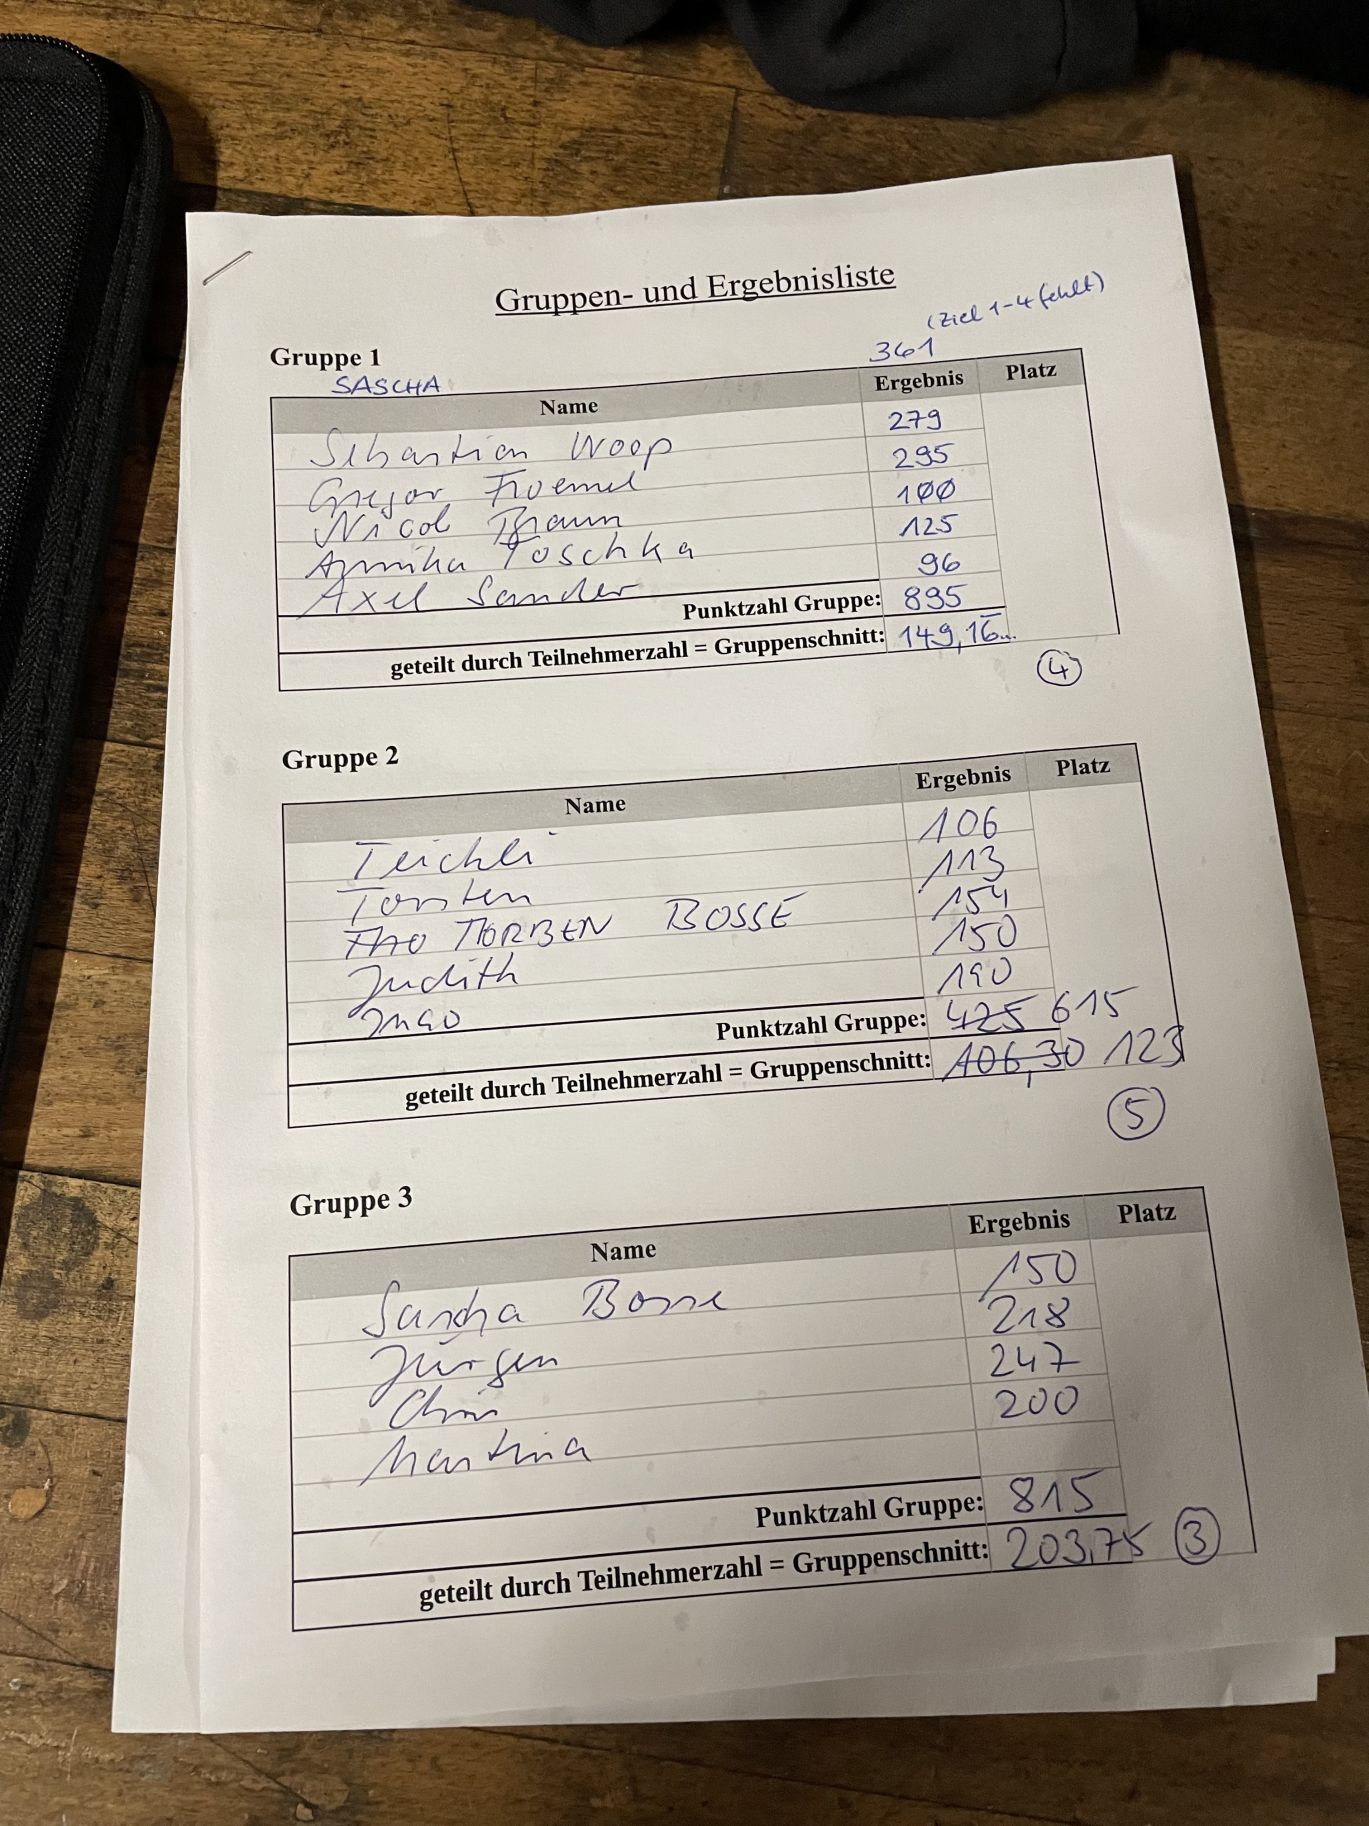 Gruppen- und Ergebnisliste
(Ziel 1-4 fehlt)
Gruppe 1
SASCHA 361
Name Ergebnis Platz
Sebastian Woop 279
Gregor 295
Nicol Braun 100
Annika Poschka 125
Axel Sander 96
Punktzahl Gruppe: 895
geteilt durch Teilnehmerzahl = Gruppenschnitt: 149,16...
4
Gruppe 2
Name Ergebnis Platz
106
Torsten 113
TORBEN BOSSE 154
Judith 150
Ingo 190
Punktzahl Gruppe: 425 615
geteilt durch Teilnehmerzahl = Gruppenschnitt: 106,30 123
5
Gruppe 3
Name Ergebnis Platz
Sascha Bosse 150
Jürgen 218
Chris 247
Martina 200
Punktzahl Gruppe: 815
geteilt durch Teilnehmerzahl = Gruppenschnitt: 203,75 3